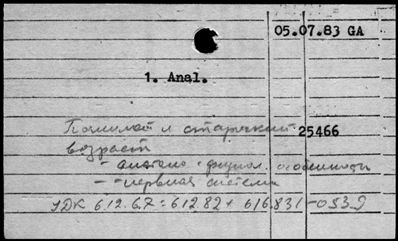 05.07.83 GA
1. Anal.
Пожилой и старческий 25466
возраст
- анатомо-физиол. особенности
- нервная система
УДК 612.67:612.82+616.831-053.9